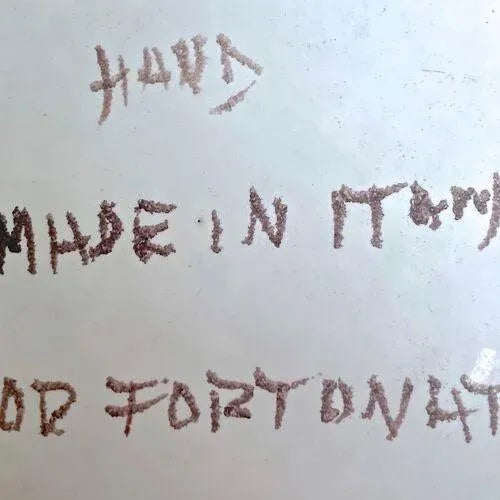 HAND
MADE IN ITALY
OR FORTONAT